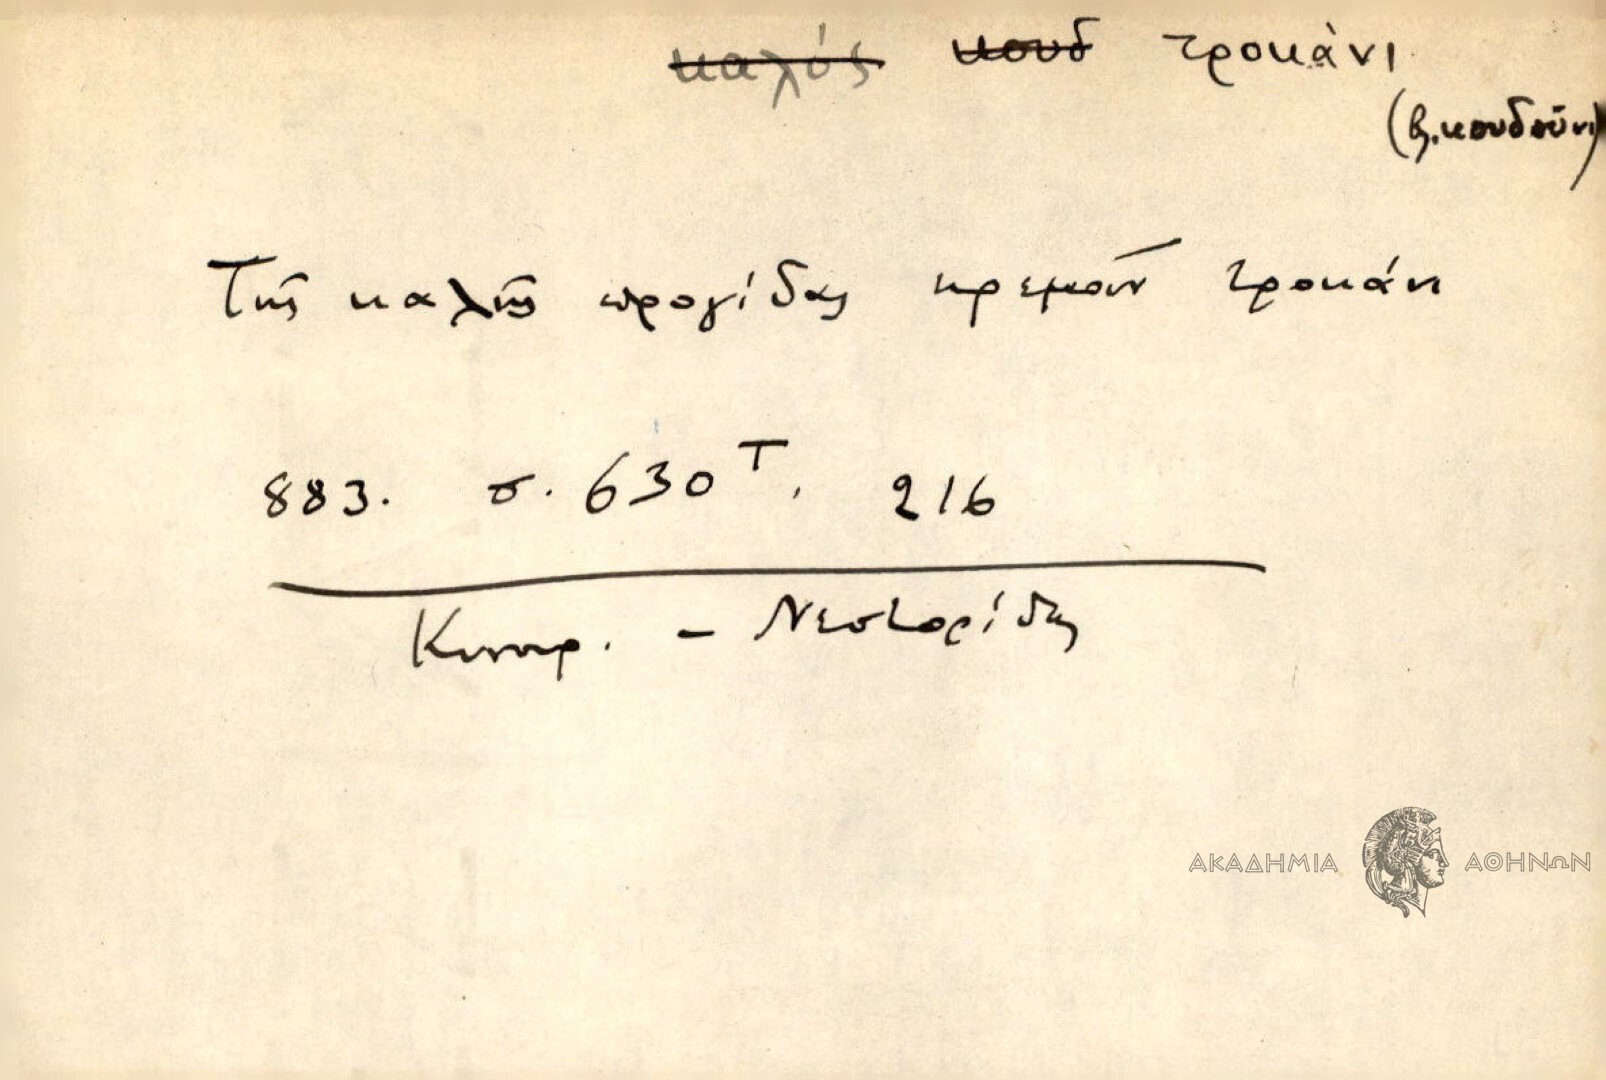 καλός κουδ τροκάνι
(βλ. κουδούνι)
Τῆς καλῆς προγίδας κρεμοῦν τροκάνι
883. σ. 630 Τ. 216
- Νεστορίδης
ΑΚΑΔΗΜΙΑ ΑΘΗΝΩΝ